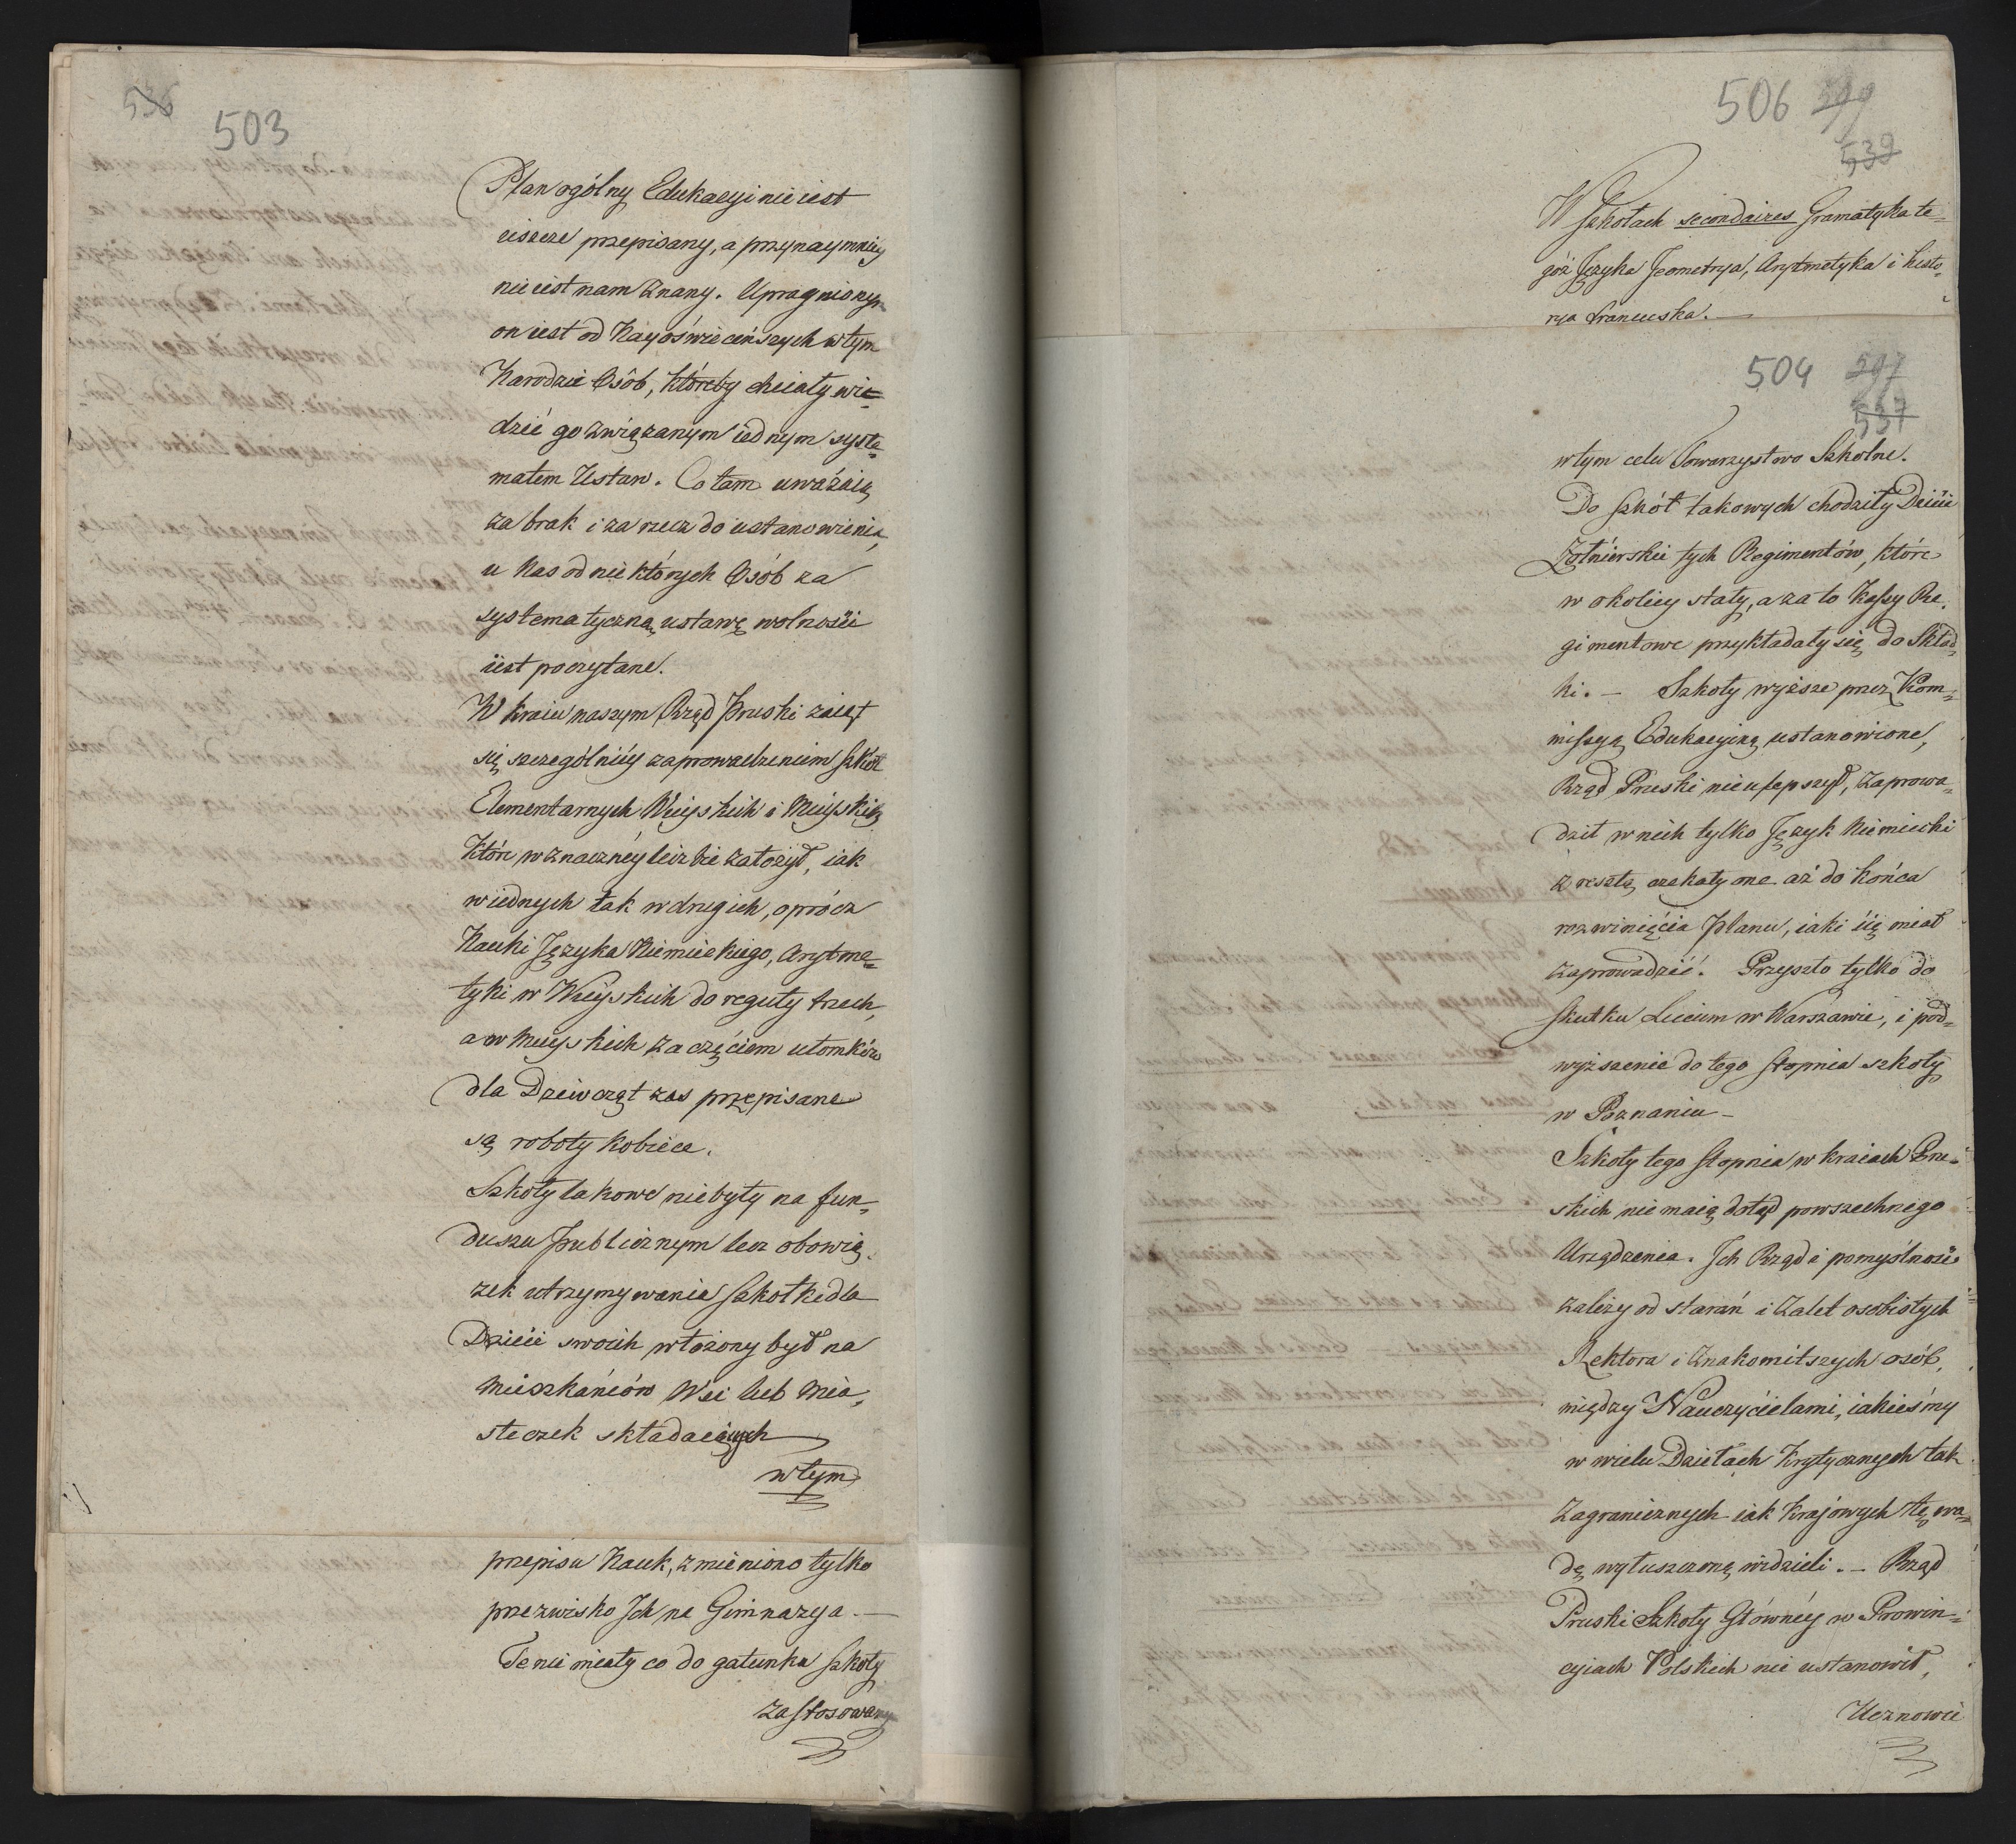 536
503
Plan ogólny Edukacyi nie iest
ieszcze przepisany, a przynaymniey
nie iest nam znany. Upragnionym
on iest od Nayoświeceńszych w tym
Narodzie Osób, któreby chciały wi=
dzieć go związanym iednym syste=
matem Ustaw. Co tam uważaią
za brak i za rzecz do ustanowienia,
u Nas od niektórych Osób za
systematyczną ustawę wolności
iest poczytane.
W kraiu naszym Rząd Pruski zaiął
się szczególniéy zaprowadzeniem szkół
Elementarnych Wieyskich i Mieyskich
które w znaczney liczbie założył, iak
w iednych tak w drugich, oprócz
Nauki Języka Niemieckiego, Arytme=
tyki w Wieyskich do reguły trzech,
a w Mieyskich zaczęciem ułomków
dla Dziewcząt zas przepisane
są roboty kobiece.
Szkoły takowe niebyły na fun=
duszu publicznym lecz obowią=
zek utrzymywania szkółki dla
Dzieci swoich włożony był na
Mieszkańców Wsi lub Mia=
steczek składaiących
w tym
przepisu Nauk, zmieniono tylko
przezwisko Ich na Gimnazya. —
Te nie miały co do gatunku szkoły
zastosowanym
506
539
W szkołach secondaires Gramatyka te=
góż Języka Jeometrya, Arytmetyka i histo=
rya francuska. —
504 507
537
w tym celu Towarzystwo Szkolne.
Do szkół takowych chodziły Dzieci
Żołnierskie tych Regimentów, które
w okolicy stały, a za to Kassy Re=
gimentowe przykładały się do Skład=
ki. — Szkoły wyższe przez Kom=
missyą Edukacyiną ustanowione,
Rząd Pruski nie ulepszył, zaprowa=
dził w nich tylko Język Niemiecki
z resztą czekały one aż do końca
rozwinięcia planu, iaki się miał
zaprowadzić. Przyszło tylko do
skutku Liceum w Warszawie, i pod=
wyższenie do tego stopnia szkoły
w Poznaniu —
Szkoły tego stopnia w kraiach Pru=
skich nie maią dotąd powszechnego
Urządzenia. Ich Rząd i pomyślność
zależy od starań i zalet osobistych
Rektora i znakomitszych osób,
między Nauczycielami, iakieśmy
w wielu Dziełach Krytycznych tak
zagranicznych iak krajowych tę wa=
dę wytuszczoną widzieli. — Rząd
Pruski Szkoły Główney w Prowin=
cyiach Polskich nie ustanowił,
Uczniowie